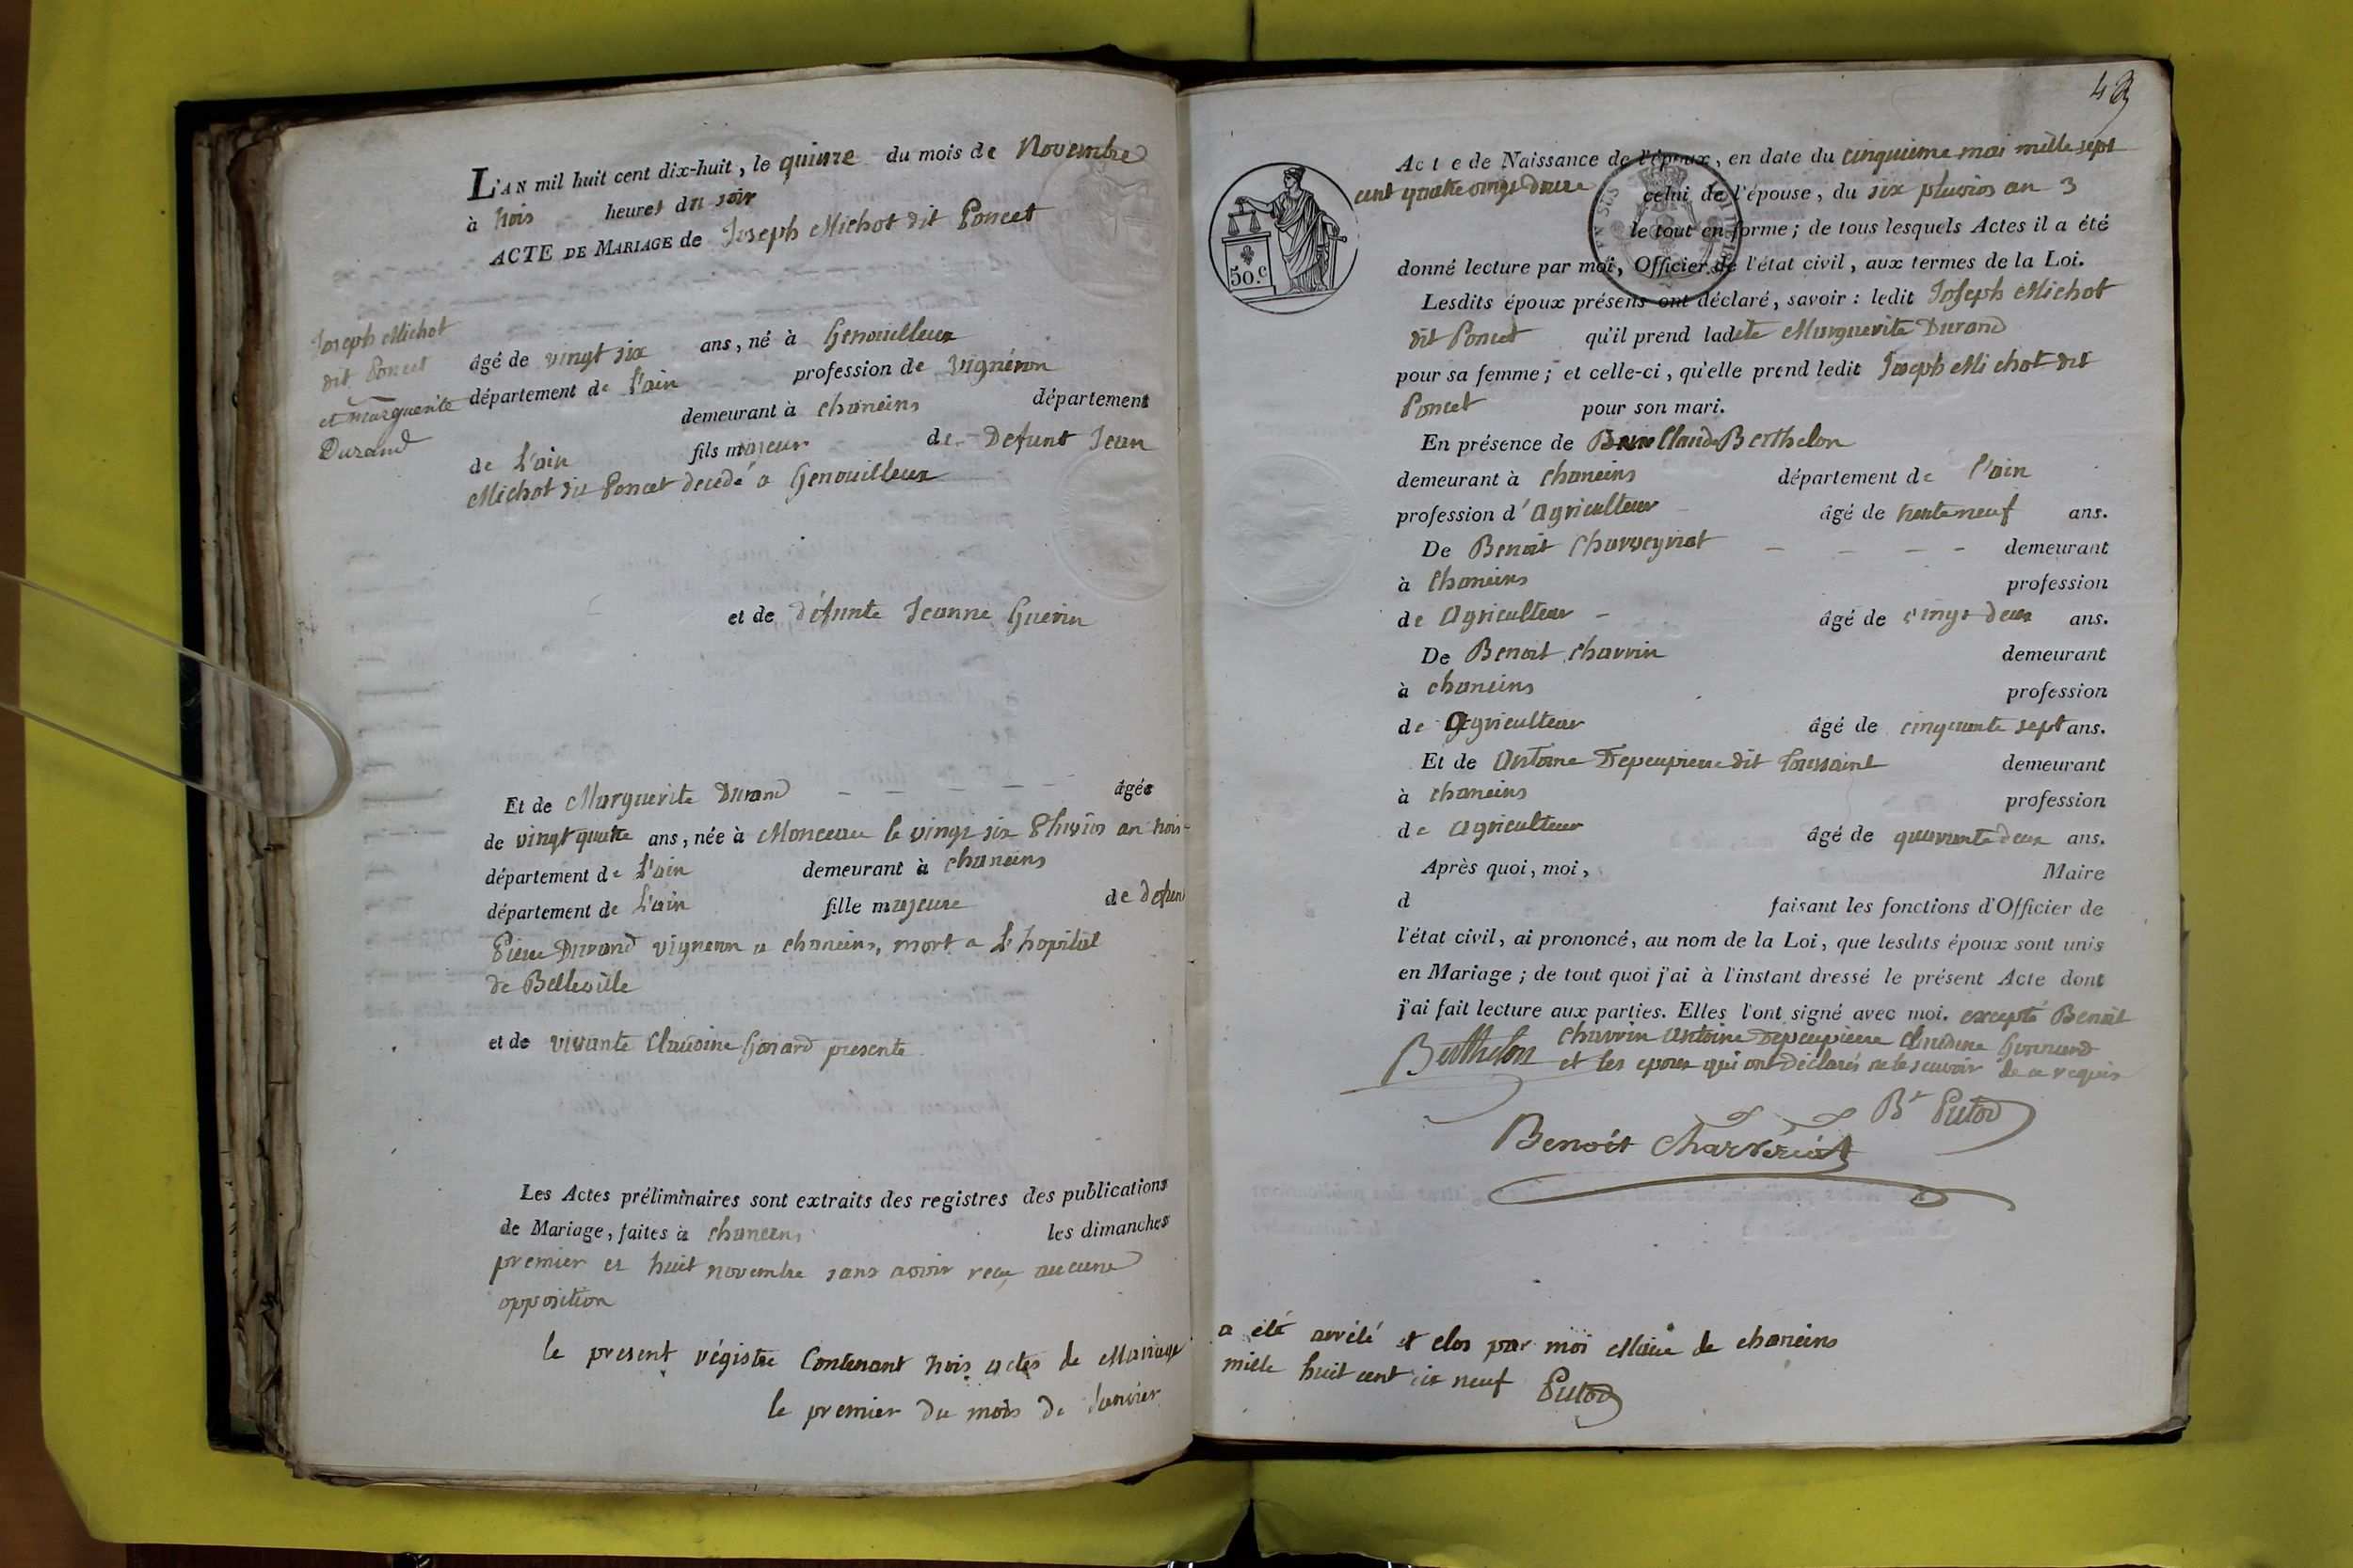 L'AN mil huit cent dix-huit, le quinze du mois de Novembre
à trois heures du soir
ACTE DE MARIAGE de Joseph Michot dit Poncet
Joseph Michot
dit Poncet
et marguerite
Durand
âgé de vingt six ans, né à Genouilleux
département de L'ain profession de vignéron
demeurant à chaneins département
de L'ain fils majeur de Defunt Jean
Michot dit Poncet décédé a Genouilleux
et de défunte Jeanne Guerin
Et de Marguerite Durand âgée
de vingt quatre ans, née à Monceau le vingt six Pluvios an trois
département de L'ain demeurant à chaneins
département de L'ain fille majeure de defun
Piere Durand vigneron a chaneins, mort a L'hopital
de Belleville
et de vivante Claudine Gonard presente
Les Actes préliminaires sont extraits des registres des publications
de Mariage, faites à chaneins les dimanches
premier et huit novembre sans avoir reçu aucune
opposition
le present régistre Contenant trois actes de Mariage
le premier du mois de Janvier
43
Acte de Naissance de l'époux, en date du cinquieme mai mille sept
cent quatre vingt douze celui de l'épouse, du six pluvios an 3
le tout en forme; de tous lesquels Actes il a été
donné lecture par moi, Officier de l'état civil, aux termes de la Loi.
50.c
Lesdits époux présens ont déclaré, savoir: ledit Joseph Michot
dit Poncet qu'il prend ladete Marguerite Durand
pour sa femme; et celle-ci, qu'elle prend ledit Joseph Michot dit
Poncet pour son mari.
En présence de Claude Berthelon
demeurant à chaneins département de l'ain
profession d'agriculteur âgé de trente neuf ans.
De Benoit Charveyriat demeurant
à chaneins profession
de agriculteur âgé de vingt deux ans.
De Benoit charvin demeurant
à chaneins profession
de agriculteur âgé de cinquante sept ans.
Et de antoine Depeupiere dit Toussaint demeurant
à chaneins profession
de agriculteur âgé de quarante deux ans.
Après quoi, moi, Maire
d faisant les fonctions d'Officier de
l'état civil, ai prononcé, au nom de la Loi, que lesdits époux sont unis
en Mariage; de tout quoi j'ai à l'instant dressé le présent Acte dont
j'ai fait lecture aux parties. Elles l'ont signé avec moi. excepté Benoit
charvin antoine Depeupiere Claudine Gonnard
Berthelon et les epoux qui ont déclarés ne le scavoir de ce requis
Bt Putod
Benoit Charveriat
a été arrété et clos par moi Maire de chaneins
mille huit cent dix neuf Putod